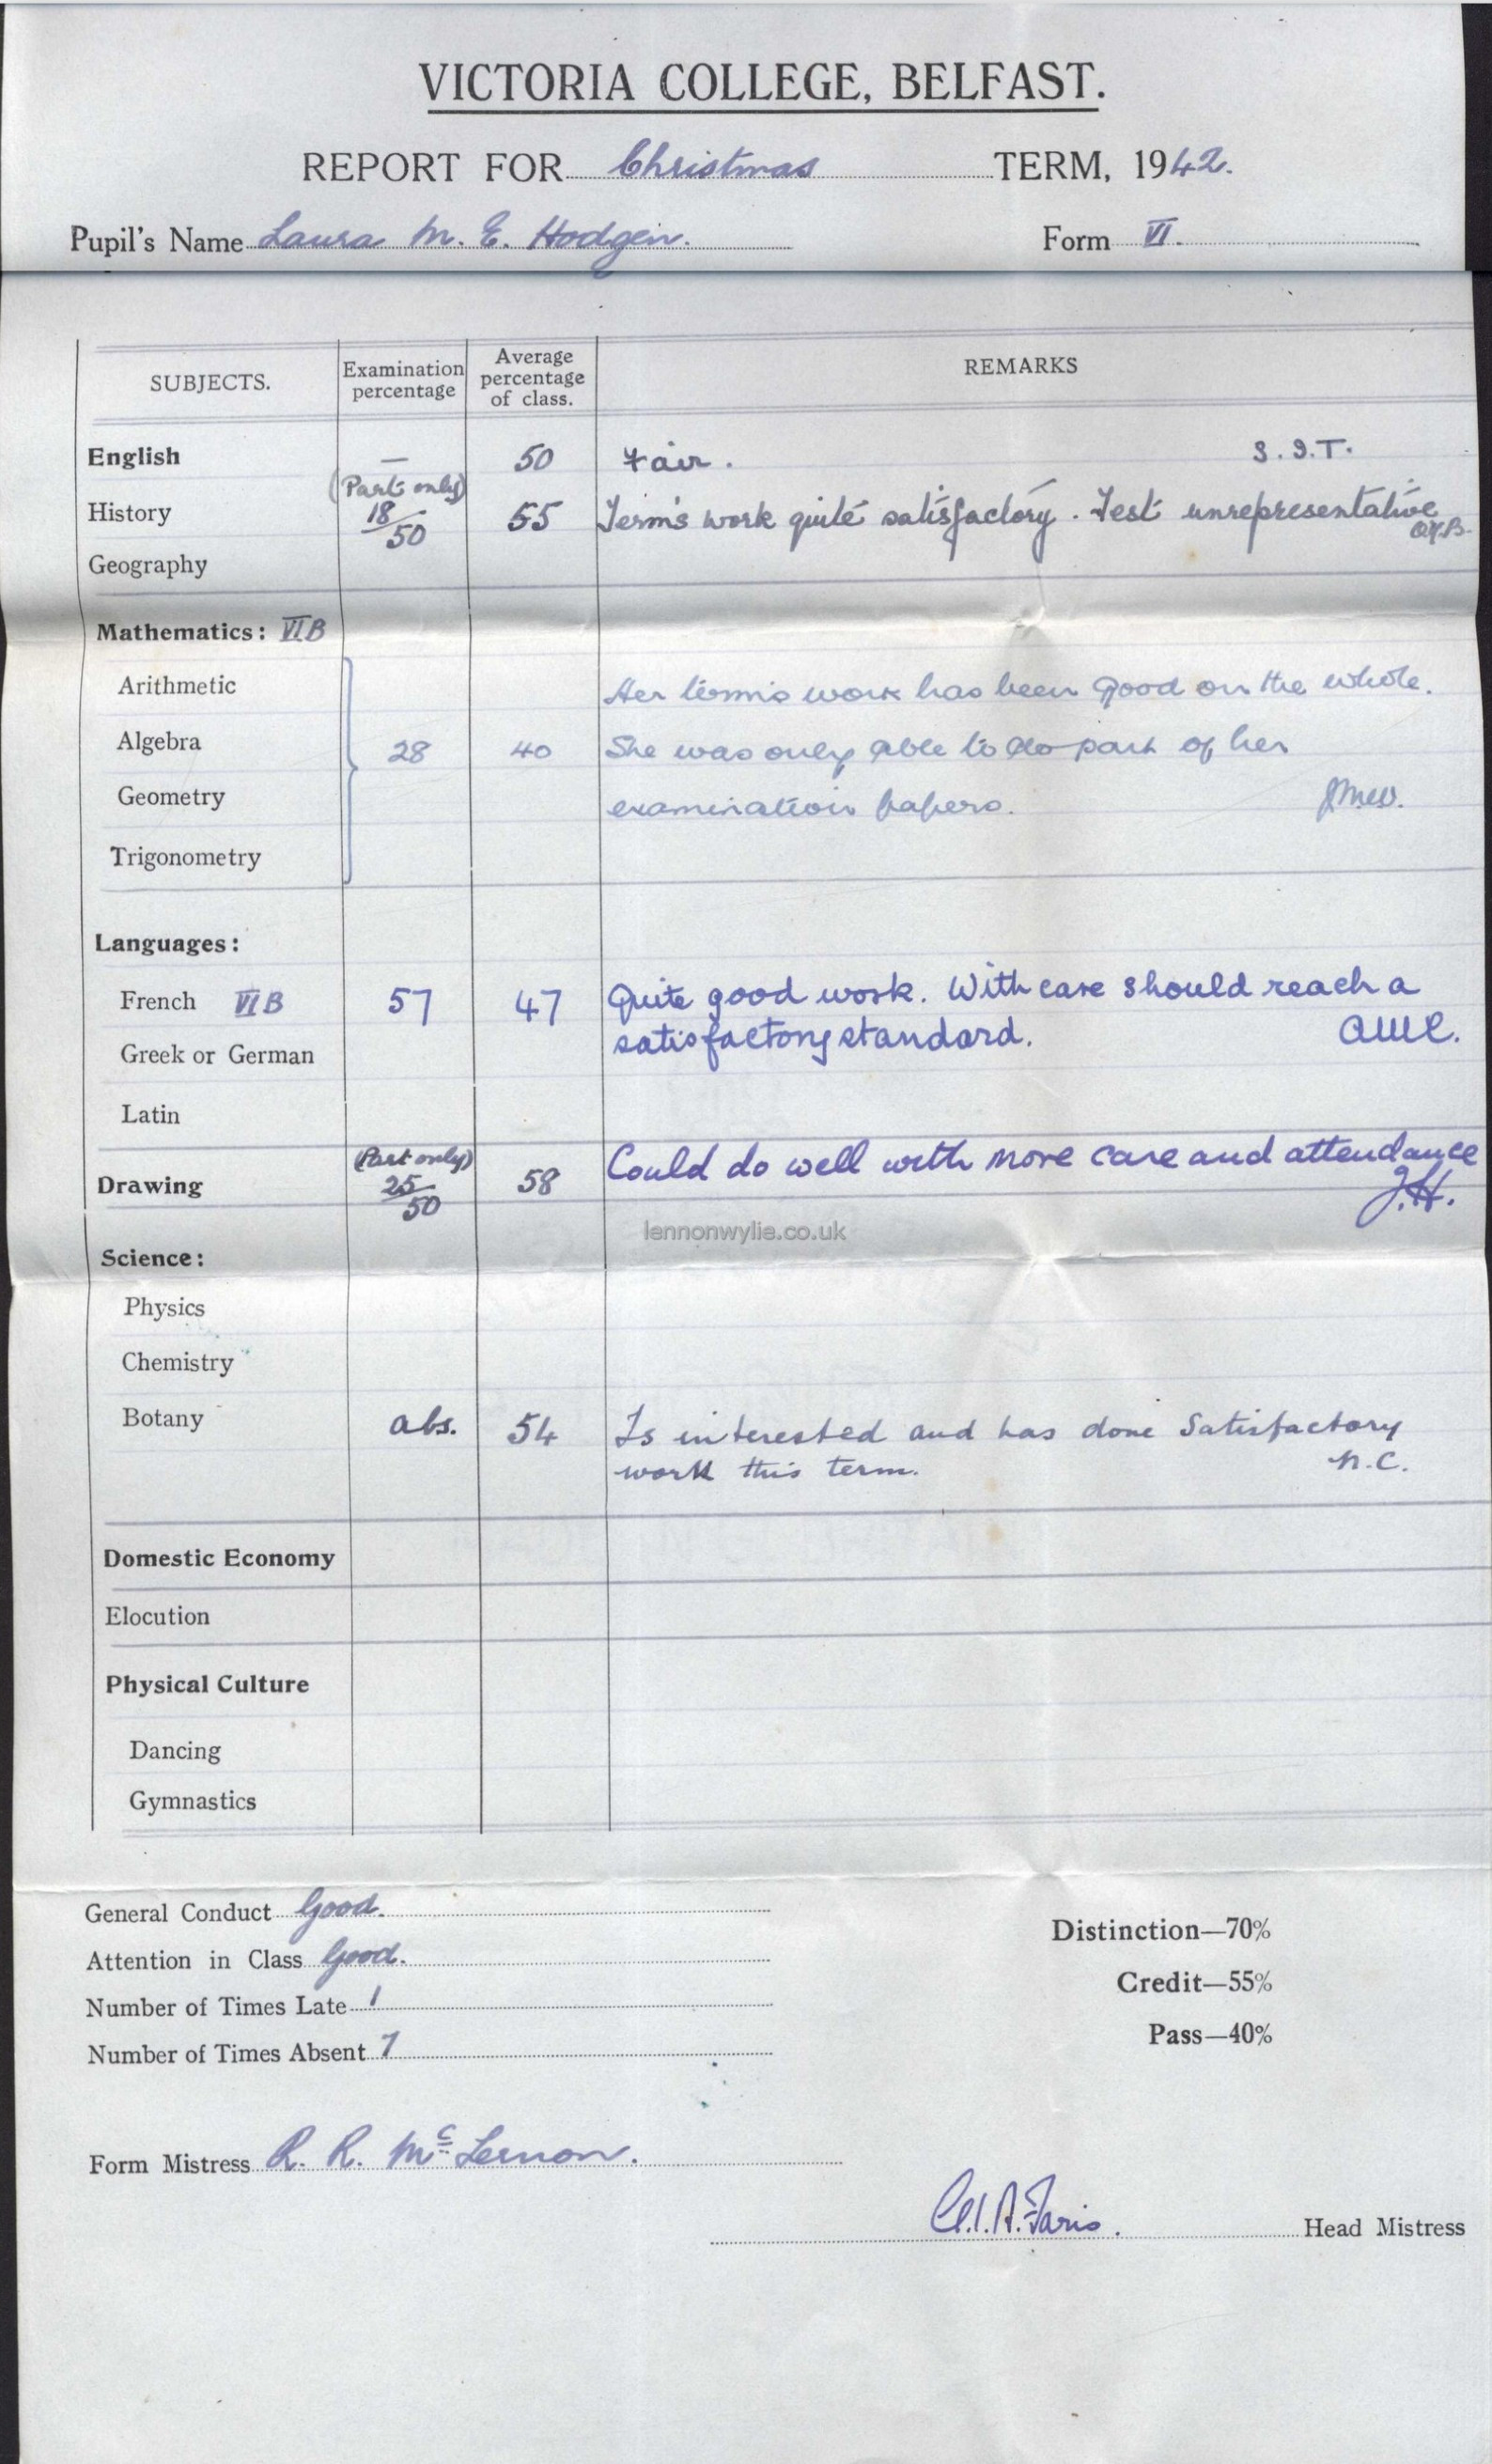 VICTORIA COLLEGE, BELFAST.
REPORT FOR Christmas TERM, 1942.
Pupil's Name Laura M. E. Hodgen. Form VI.
SUBJECTS. Examination percentage Average percentage of class. REMARKS
English — 50 Fair. S.I.T.
(Part only)
History 18/50 55 Term's work quite satisfactory. Test unrepresentative
Geography
Mathematics: VI B
Arithmetic Her term's work has been good on the whole.
Algebra 28 40 She was only able to do part of her
Geometry examination papers.
Trigonometry
Languages:
French VI B 57 47 Quite good work. With care should reach a
satisfactory standard.
Greek or German
Latin
(Part only) Could do well with more care and attendance
Drawing 25/50 58 J.H.
lennonwylie.co.uk
Science:
Physics
Chemistry
Botany abs. 54 Is interested and has done satisfactory
work this term. N.C.
Domestic Economy
Elocution
Physical Culture
Dancing
Gymnastics
General Conduct Good.
Attention in Class Good.
Number of Times Late 1
Number of Times Absent 7
Distinction—70%
Credit—55%
Pass—40%
Form Mistress R. R. McLernon.
Faris. Head Mistress